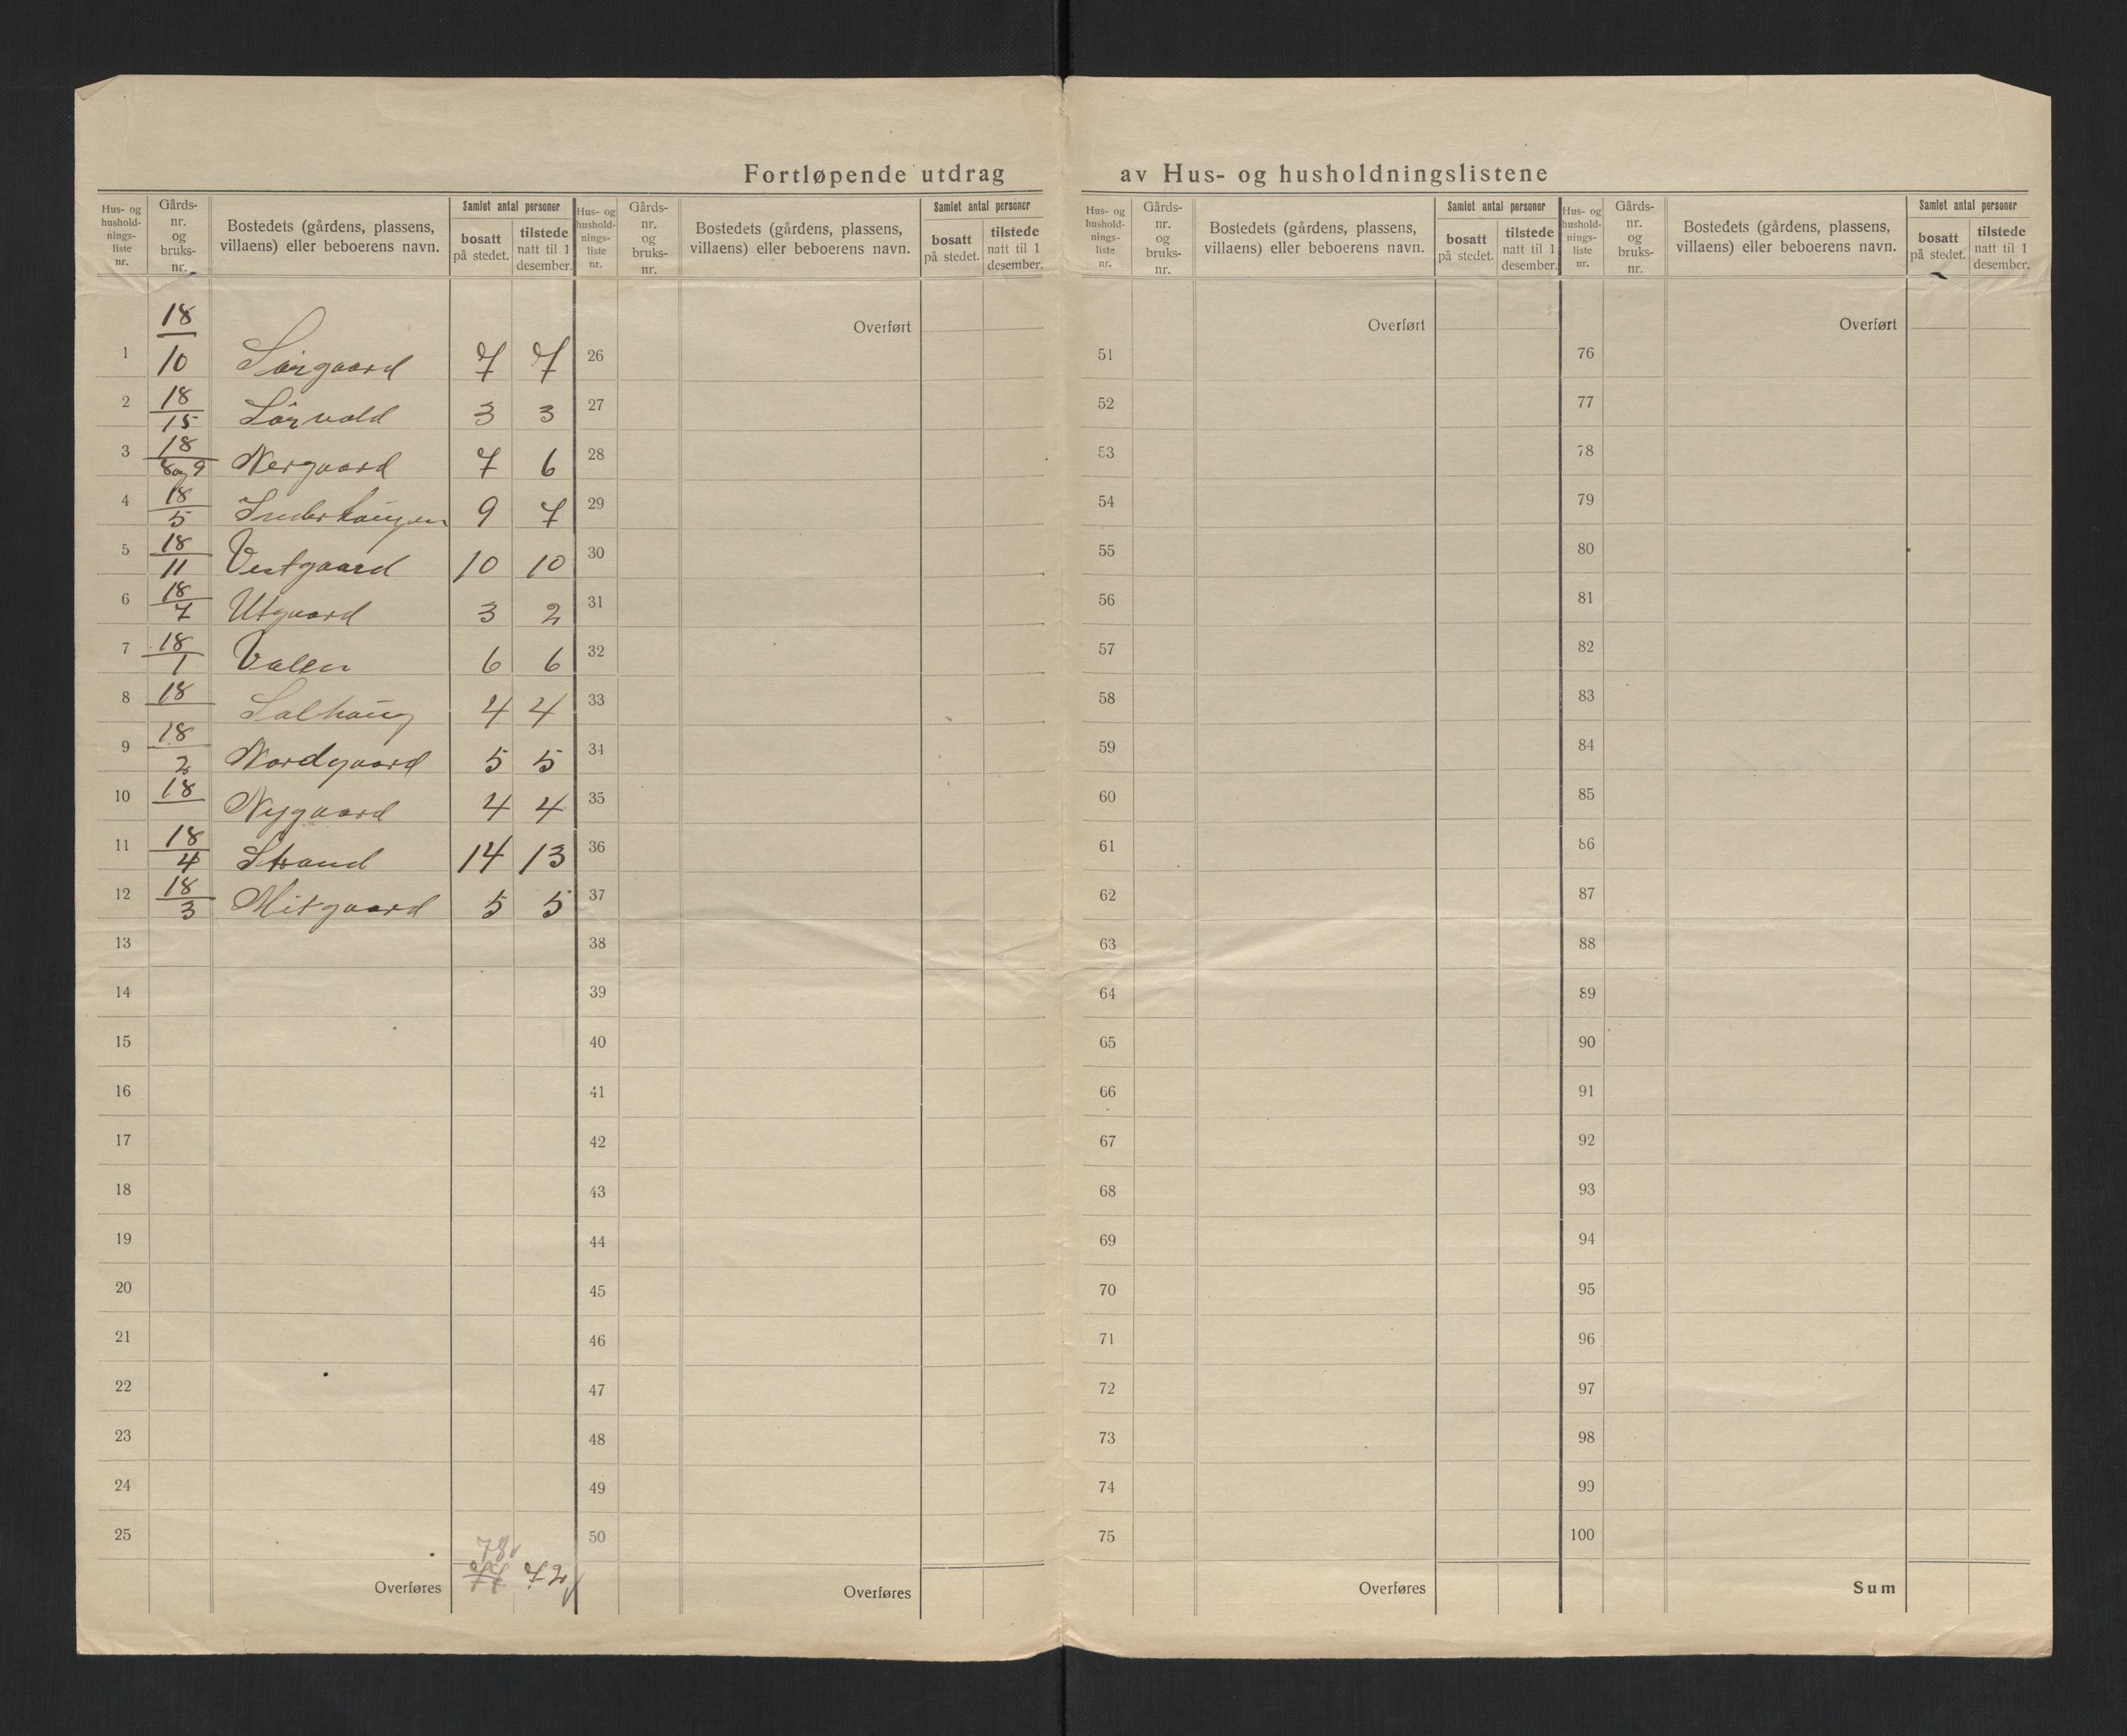 Fortløpende utdrag av Hus- og husholdningslistene
Hus- og hushold- nings- liste nr. Gårds- nr. og bruks- nr. Bostedets (gårdens, plassens, villaens) eller beboerens navn. Samlet antal personer bosatt på stedet. tilstede natt til 1 desember.
1 18/10 Sørgaard 7 7
2 18/15 Sørvold 3 3
3 18/8 og 9 Nergaard 7 6
4 18/5 Inderhaugen 9 7
5 18/11 Vestgaard 10 10
6 18/7 Utgaard 3 2
7 18/1 Valen 6 6
8 18 Solhaug 4 4
9 18/2 Nordgaard 5 5
10 18 Nygaard 4 4
11 18/4 Strand 14 13
12 18/3 Mitgaard 5 5
13
14
15
16
17
18
19
20
21
22
23
24
25
78
Overføres 77 72
Hus- og hushold- nings- liste nr. Gårds- nr. og bruks- nr. Bostedets (gårdens, plassens, villaens) eller beboerens navn. Samlet antal personer bosatt på stedet. tilstede natt til 1 desember.
Overført
26
27
28
29
30
31
32
33
34
35
36
37
38
39
40
41
42
43
44
45
46
47
48
49
50
Overføres
Hus- og hushold- nings- liste nr. Gårds- nr. og bruks- nr. Bostedets (gårdens, plassens, villaens) eller beboerens navn. Samlet antal personer bosatt på stedet. tilstede natt til 1 desember.
Overført
51
52
53
54
55
56
57
58
59
60
61
62
63
64
65
66
67
68
69
70
71
72
73
74
75
Overføres
Hus- og hushold- nings- liste nr. Gårds- nr. og bruks- nr. Bostedets (gårdens, plassens, villaens) eller beboerens navn. Samlet antal personer bosatt på stedet. tilstede natt til 1 desember.
Overført
76
77
78
79
80
81
82
83
84
85
86
87
88
89
90
91
92
93
94
95
96
97
98
99
100
Sum